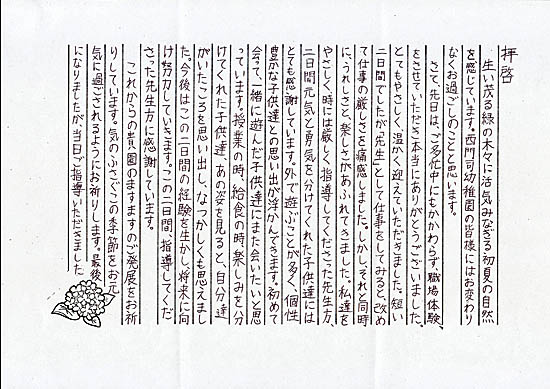 拝啓
生い茂る緑の木々に活気みなぎる初夏の自然
を感じています。西門司幼稚園の皆様にはお変わり
なくお過ごしのことと思います。
さて、先日は、ご多忙中にもかかわらず、職場体験
をさせていただき本当にありがとうございました。
とてもやさしく、温かく迎えていただきました。短い
二日間でしたが「先生」として仕事をしてみると、改め
て仕事の厳しさを痛感しました。しかし、それと同時
に、うれしさと、楽しさがあふれてきました。私達を
やさしく、時には厳しく、指導してくださった先生方、
二日間元気と勇気を分けてくれた子供達には
とても感謝しています。外で遊ぶことが多く、個性
豊かな子供達との思い出が浮かんできます。初めて
会って、一緒に遊んだ子供達にまた会いたいと思
っています。授業の時、給食の時、楽しみを分
けてくれた子供達、あの姿を見ると、自分達
がいたころを思い出し、なつかしくも思えまし
た。今後はこの二日間の経験を生かし、将来に向
け努力していきます。この二日間、指導してくだ
さった先生方に感謝しています。
これからの貴園のますますのご発展をお祈
りしています。気のふさぐこの季節をお元
気に過ごされるようにお祈りします。最後
になりましたが、当日ご指導いただきました